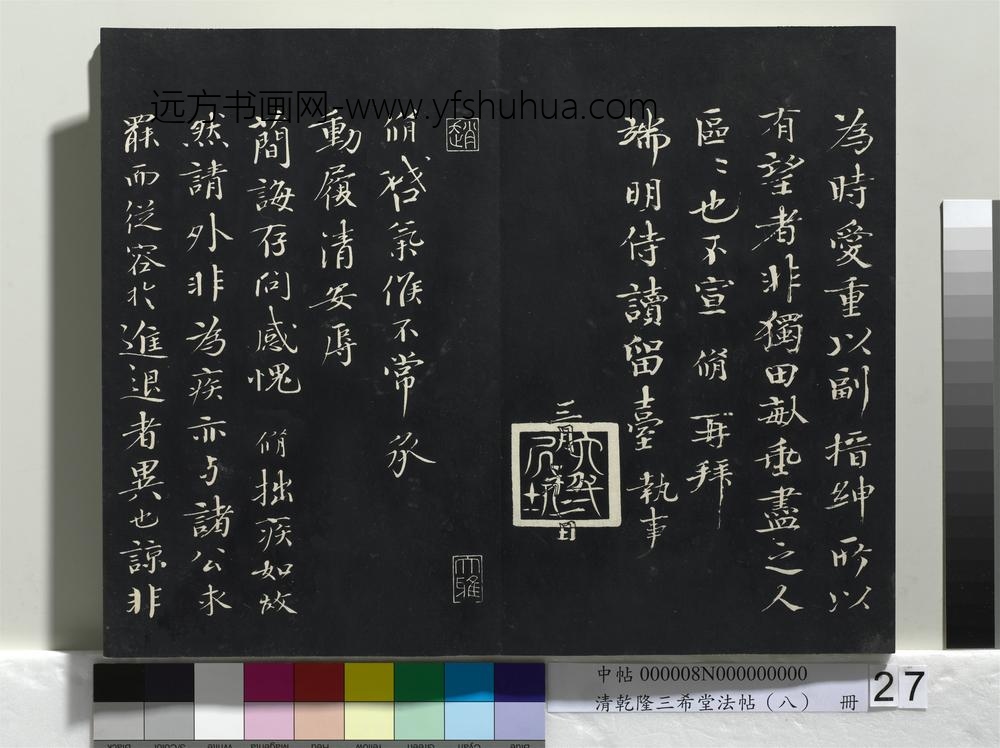 远方书画网-www.yfshuhua.com
為時愛重以副搢紳所以
有望者非獨田畝垂盡之人
區〻也不宣 脩 再拜
端明侍讀留臺 執事
三月 日
趙
大雅
脩啓氣候不常 承
動履清安辱
蕳誨存問感愧 脩拙疾如故
然請外非為疾亦与諸公求
罷而從容於進退者異也諒非
中帖 000008N000000000
清乾隆三希堂法帖（八） 冊
27